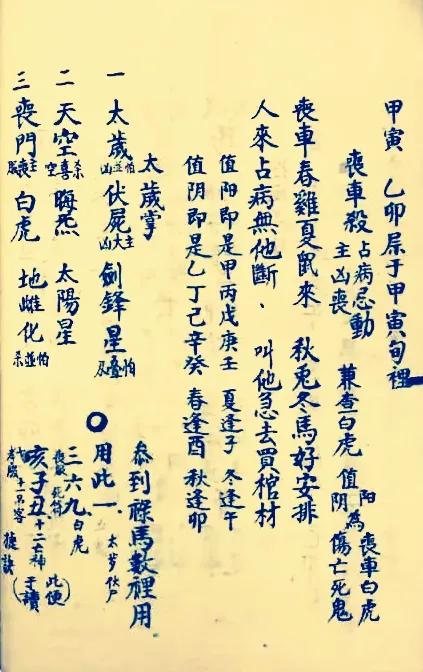 甲寅 乙卯屬于甲寅旬裡
喪車殺 占病忌動 主凶喪 兼查白虎 值 阳為喪車白虎 阴傷亡死鬼
喪車春雞夏鼠來 秋兎冬馬好安排
人來占病無他斷、 叫他急去買棺材
值阳即是甲丙戊庚壬 夏逢子 冬逢午
值阴即是乙丁己辛癸 春逢酉 秋逢卯
太歲掌 叅到祿馬數裡用
一 太歲 怕並凶 伏屍 主大凶 劍鋒星 怕疊 用此一、 太岁伏尸
二 天空 喜空 晦炁 太陽星 三六九 白虎
三 喪門 主喪服 白虎 地雌化 怕並 亥子丑 十二亡神 (此便于讀)
捷訣